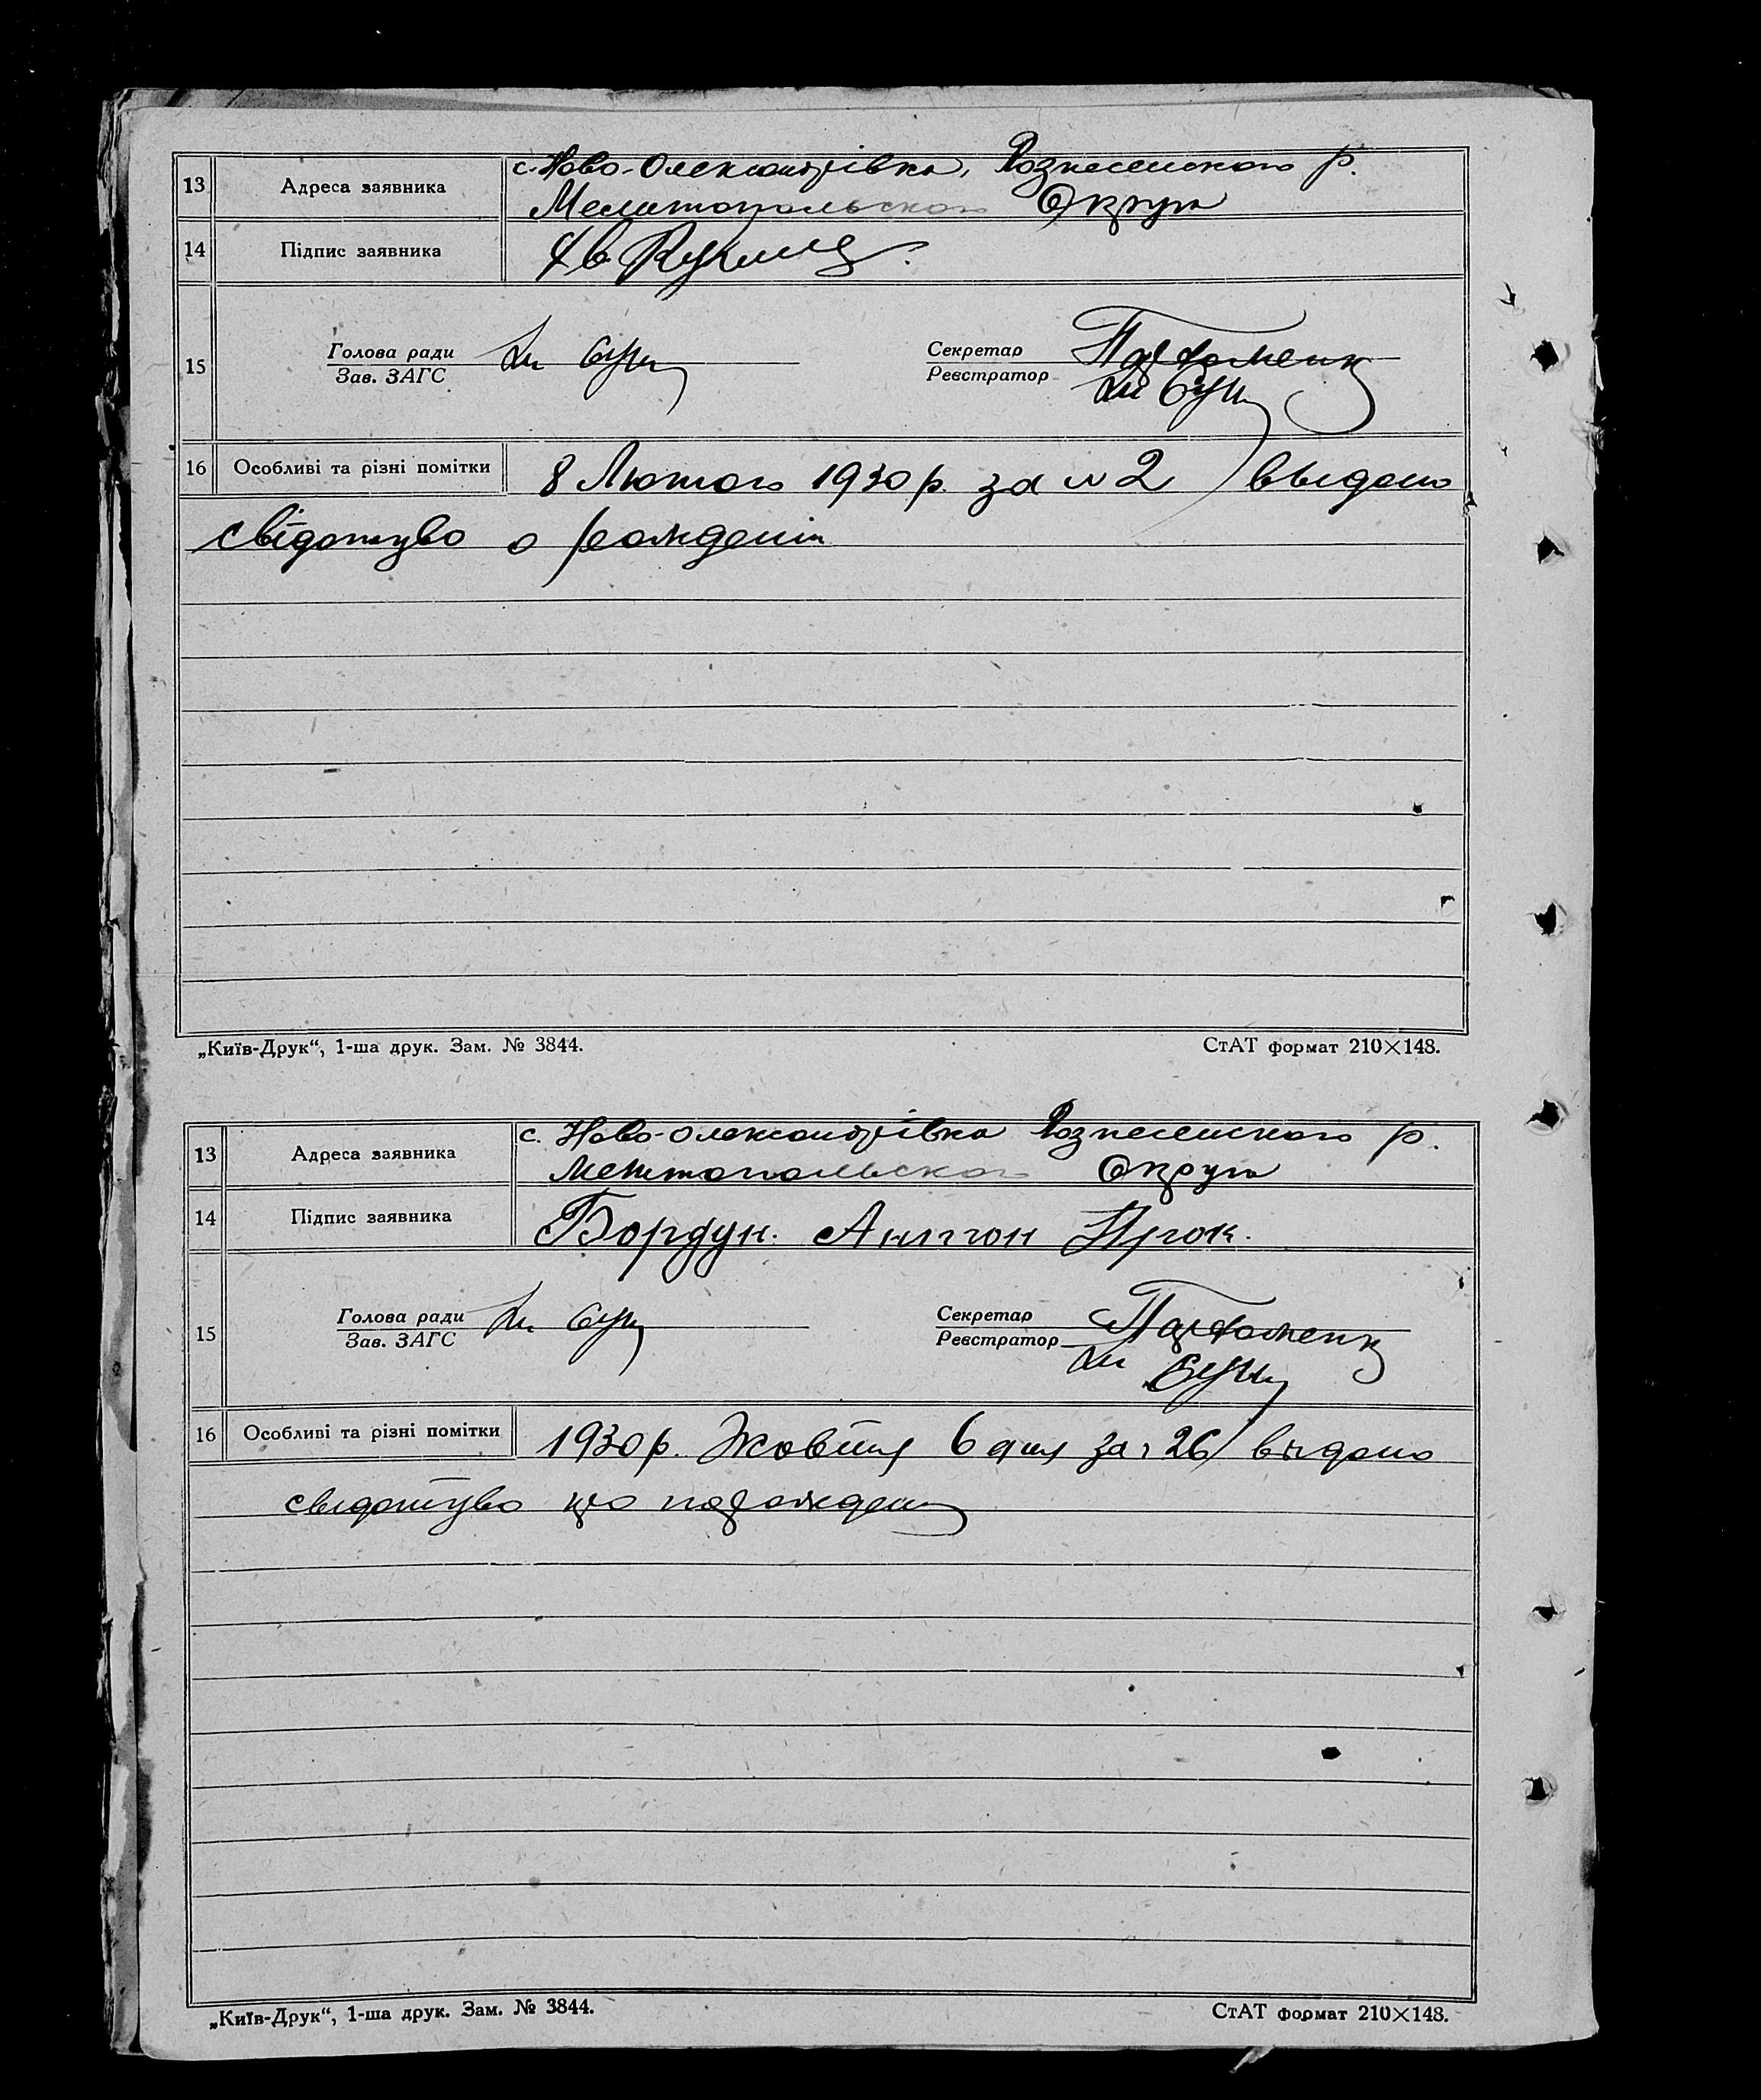 13 Адреса заявника с. Ново-Олександрівка, Вознесенского р.
Мелитопольского Округи
14 Підпис заявника
15 Голова ради
Зав. ЗАГС
Секретар Пархоменк
Реєстратор
16 Особливі та різні помітки 8 Лютого 1930 р. за № 2 выдано
свідотцво о рождении
„Київ-Друк“, 1-ша друк. Зам. № 3844. СтАТ формат 210×148.
13 Адреса заявника с. Ново-Олександрівка Вознесенского р.
Мелитопольского Округи
14 Підпис заявника Бордун. Антон Прок.
15 Голова ради
Зав. ЗАГС
Секретар Пархоменк
Реєстратор
16 Особливі та різні помітки 1930 р. Жовтня 6 дня за 26 видано
свидотцво про
„Київ-Друк“, 1-ша друк. Зам. № 3844. СтАТ формат 210×148.